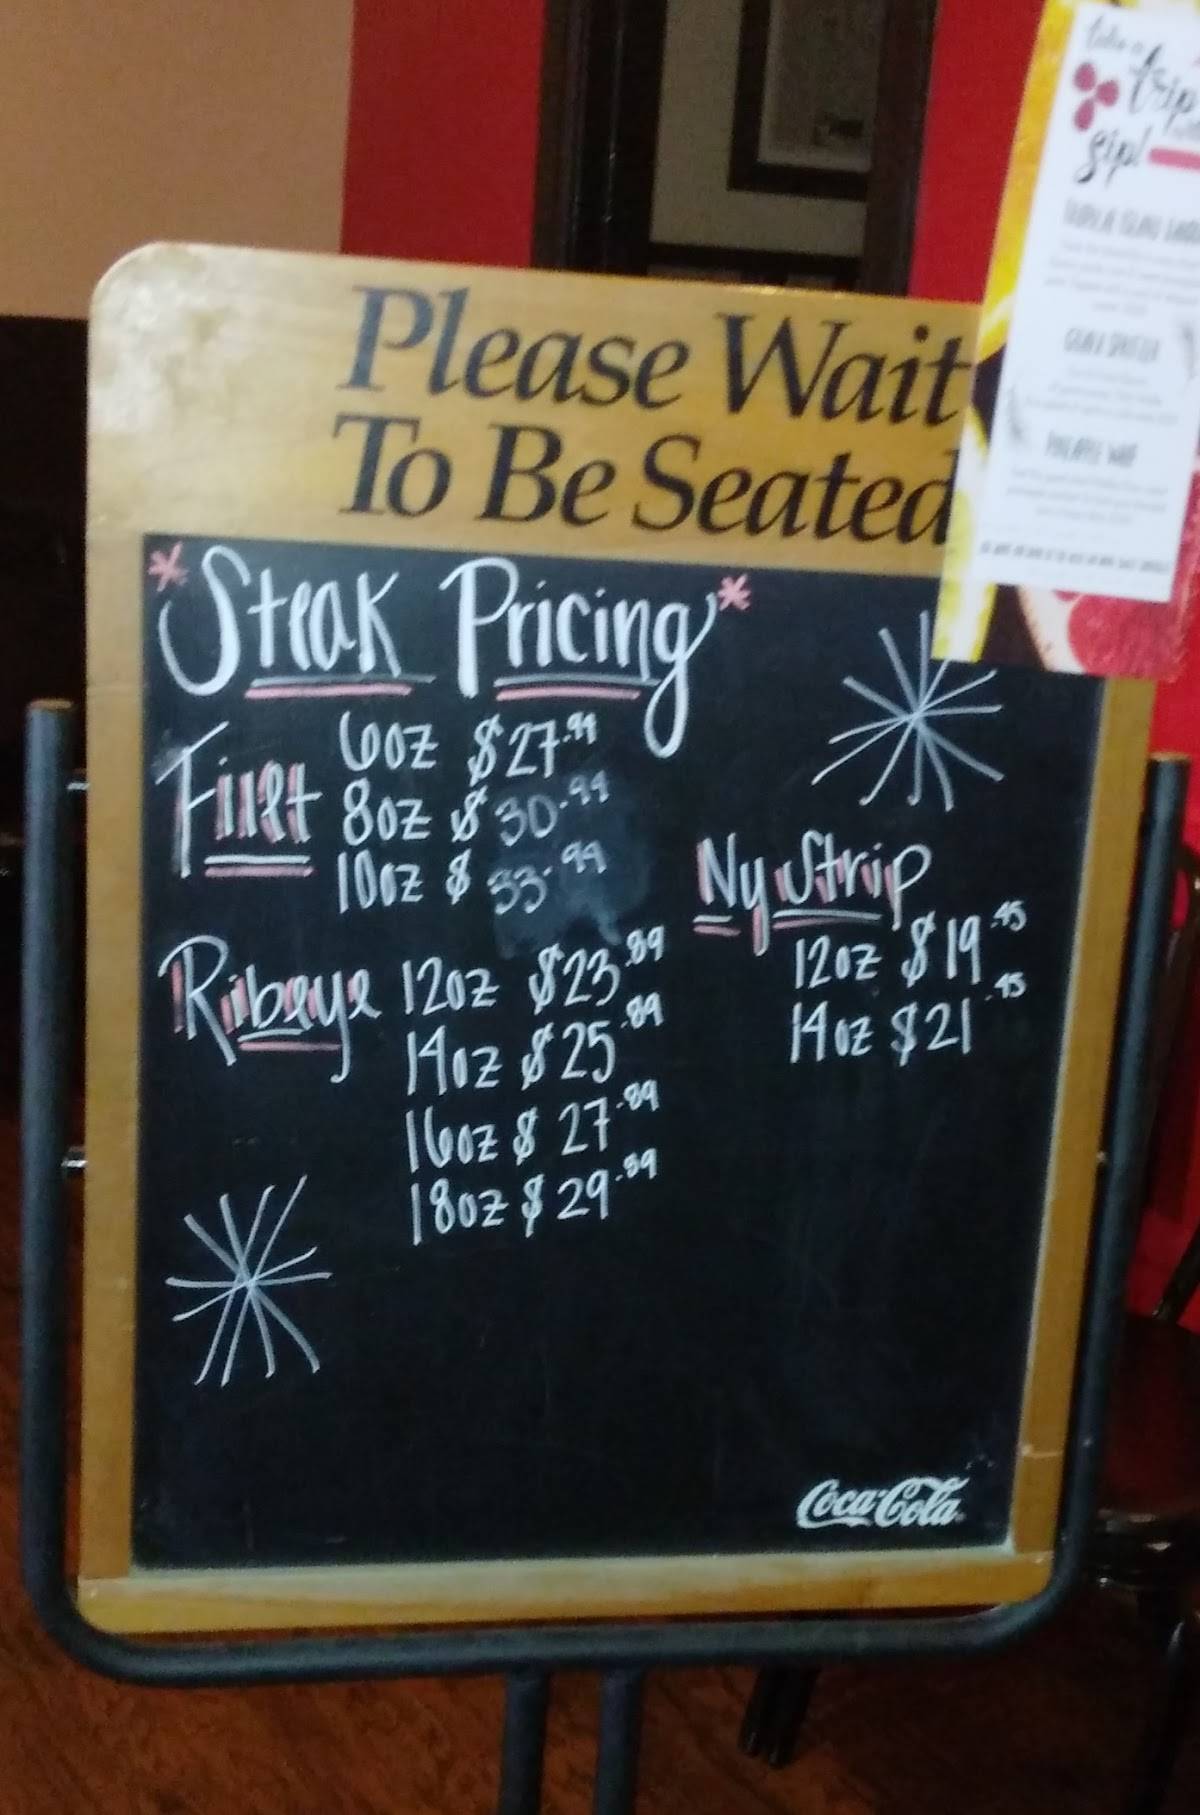 Please Wait
To Be Seated
*Steak Pricing*
Filet
6oz $27.99
8oz $30.99
10oz $33.99
Ribeye
12oz $23.89
14oz $25.89
16oz $27.89
18oz $29.89
Ny Strip
12oz $19.95
14oz $21.95
Coca-Cola
take a
trip
sip!